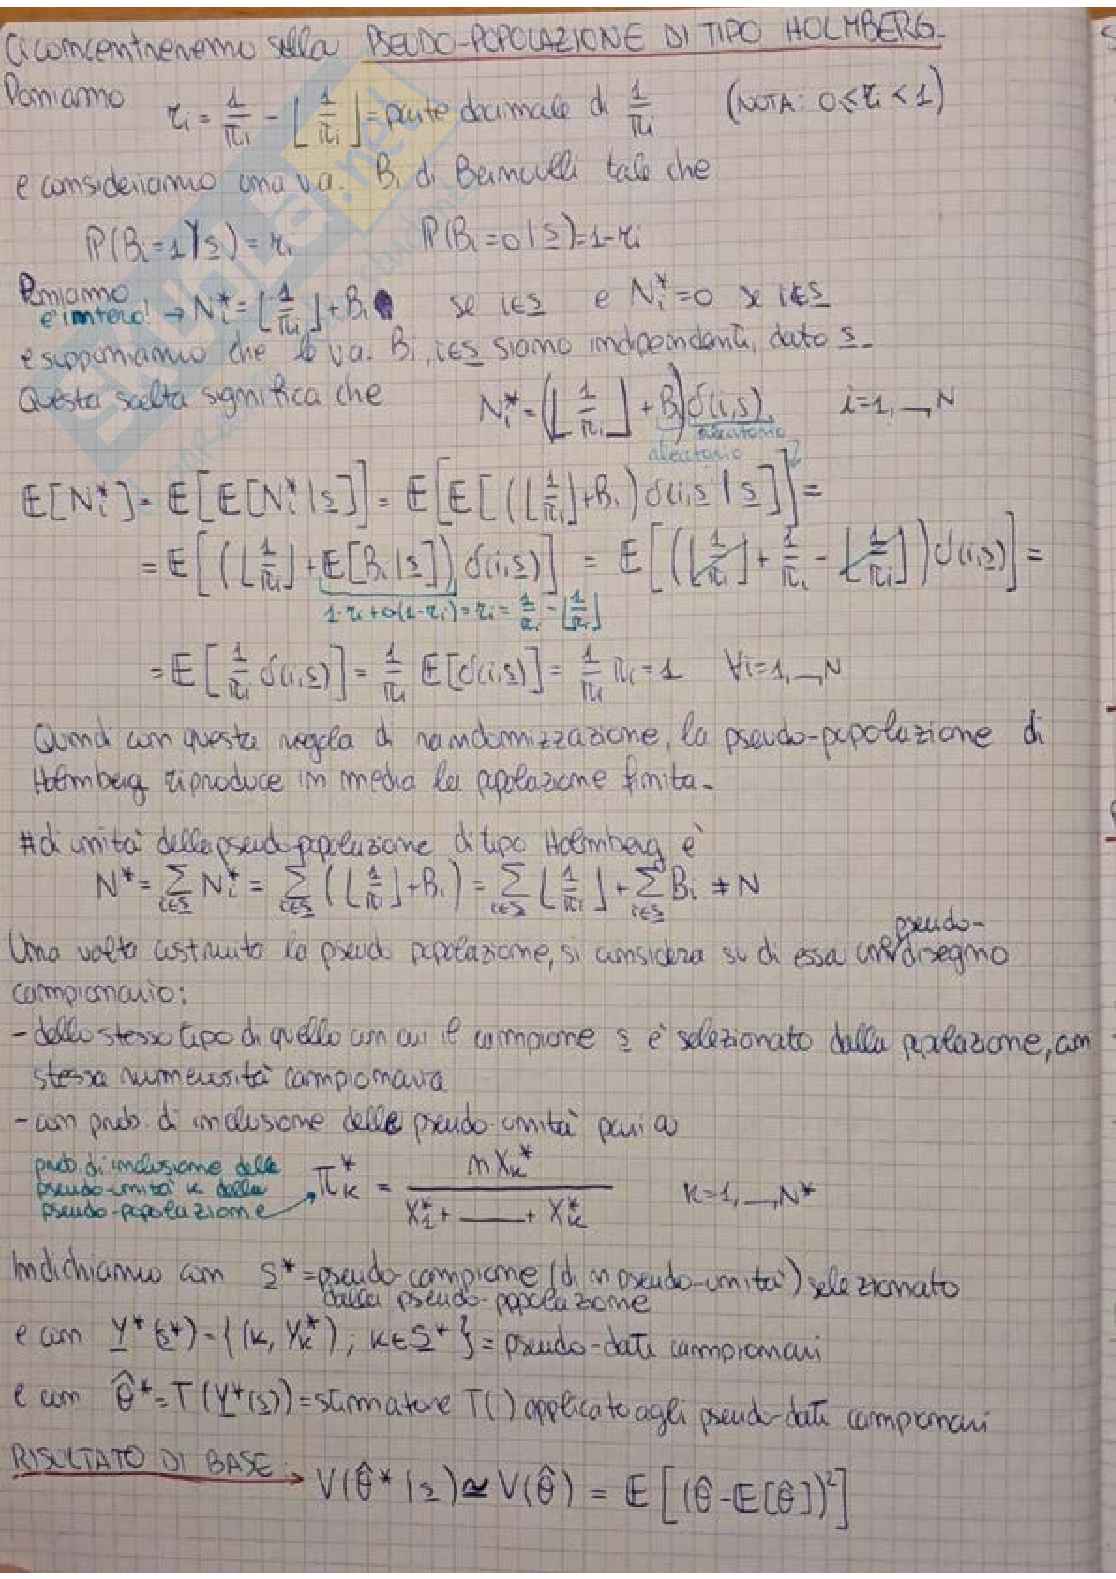 Ci concentreremo sulla PSEUDO-POPOLAZIONE DI TIPO HOLMBERG.
Poniamo r_i = 1/π_i - ⌊1/π_i⌋ = parte decimale di 1/π_i (NOTA: 0≤r_i<1)
e consideriamo una v.a. B_i di Bernoulli tale che
P(B_i=1|s)=r_i P(B_i=0|s)=1-r_i
Poniamo N_i*=⌊1/π_i⌋+B_i se i∈s e N_i*=0 se i∉s
è intero! →
e supponiamo che le v.a. B_i, i∈s siano indipendenti, dato s.
Questa scelta significa che N_i*=(⌊1/π_i⌋+B_i)δ(i,s), i=1,...,N
aleatorio
aleatorio
E[N_i*]= E[E[N_i*|s]]= E[E[(⌊1/π_i⌋+B_i)δ(i,s|s]]=
= E[(⌊1/π_i⌋+E[B_i|s])δ(i,s)] = E[(⌊1/π_i⌋+1/π_i-⌊1/π_i⌋)δ(i,s)]=
1·r_i+0(1-r_i)=r_i=1/π_i-⌊1/π_i⌋
= E[1/π_i δ(i,s)]= 1/π_i E[δ(i,s)]= 1/π_i π_i=1 ∀i=1,...,N
Quindi con questa regola di randomizzazione, la pseudo-popolazione di
Holmberg riproduce in media la popolazione finita.
# di unità della pseudo popolazione di tipo Holmberg è
N*=∑_{i∈s} N_i*= ∑_{i∈s}(⌊1/π_i⌋+B_i)= ∑_{i∈s}⌊1/π_i⌋+∑_{i∈s}B_i ≠ N
pseudo-
Una volta costruita la pseudo popolazione, si considera su di essa un disegno
campionario:
- dello stesso tipo di quello con cui il campione s è selezionato dalla popolazione, con
stessa numerosità campionaria
- con prob. di inclusione delle pseudo unità pari a
prob. di inclusione della
pseudo-unità k dalla
pseudo-popolazione
π_k* = nX_k* / (X_1*+...+X_k*) k=1,...,N*
Indichiamo con s*=pseudo-campione (di n pseudo-unità) selezionato
dalla pseudo-popolazione
e con Y*(s*)={(k, Y_k*); k∈s*}=pseudo-dati campionari
e con θ̂*=T(Y*(s))=stimatore T() applicato agli pseudo-dati campionari
RISULTATO DI BASE → V(θ̂*|s)≃V(θ̂) = E[(θ̂-E[θ̂])²]